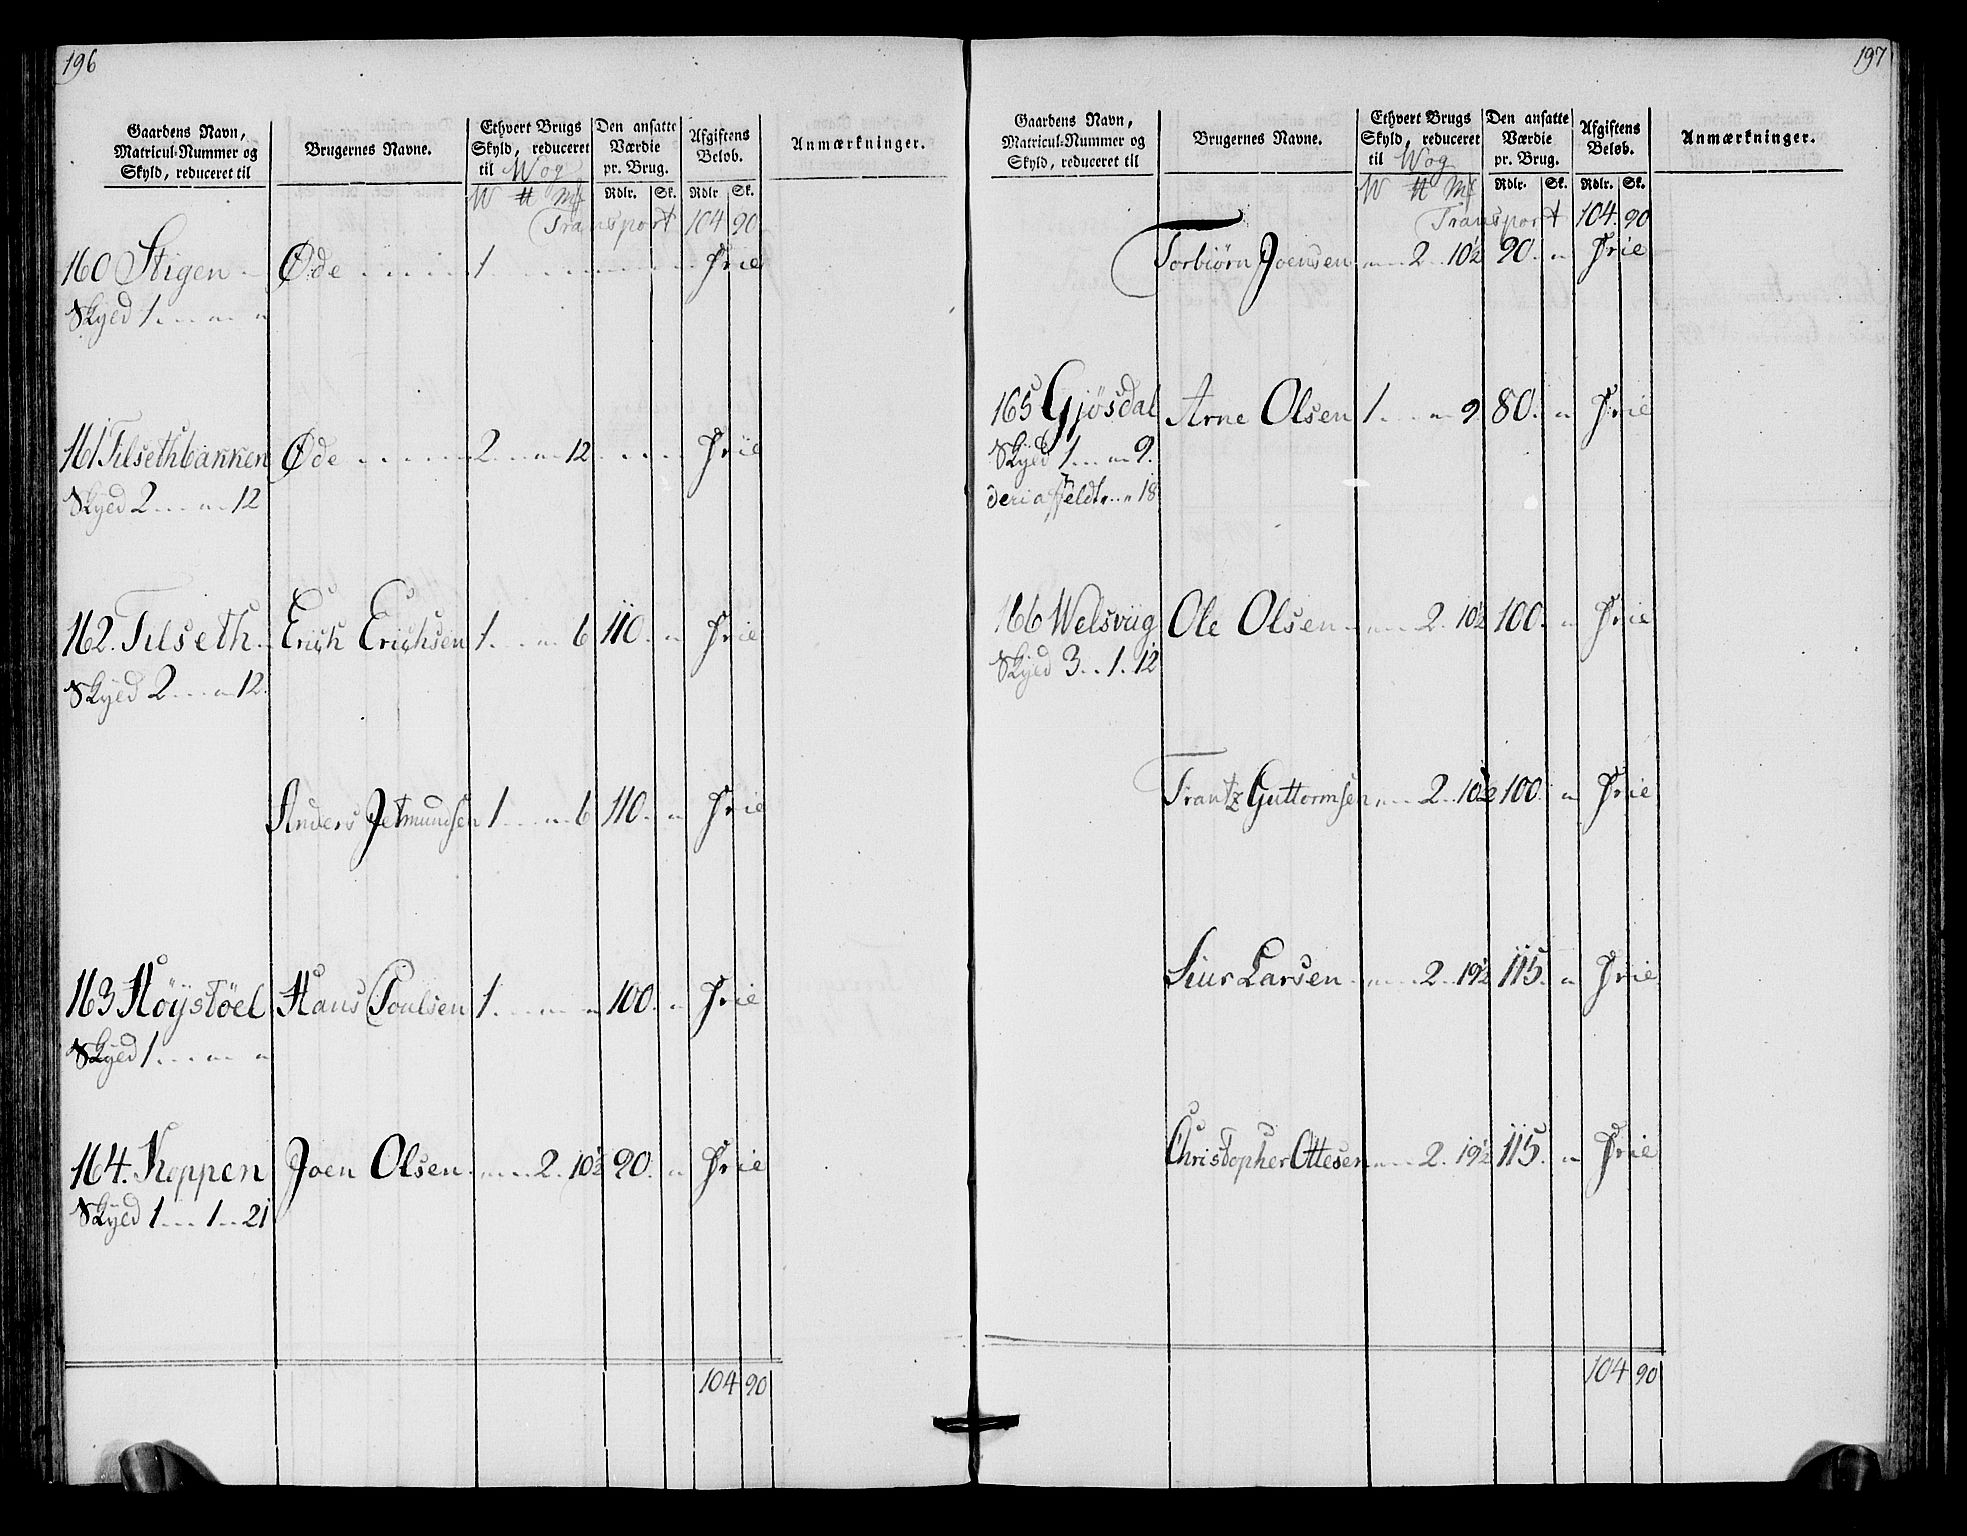 196
Gaardens Navn, Matricul-Nummer og Skyld, reduceret til
Brugernes Navne.
Ethvert Brugs Skyld, reduceret til Wog
W ℔ Mk
Den ansatte Værdie pr. Brug.
Rdlr. Sk.
Afgiftens Beløb.
Rdlr Sk.
Anmærkninger.
Transport 104 90
160 Stigen Øde 1 Frie
Skyld 1 . . . „ . . „
161 Tilsethbakken Øde 2 . . . „ . 12 Frie
Skyld 2 . . . „ . 12
162. Tilseth Erich Erichsen 1 . . . „ . 6 110. „ Frie
Skyld 2 . . . „ 12.
Anders Jetmundsen 1 . . . „ . 6 110. „ Frie
163 Høystøel Hans Poulsen 1 . . . „ . . „ 100. „ Frie
Skyld 1 . . . „ . . „
164. Koppen Joen Olsen „ . . 2. 10½ 90. „ Frie
Skyld 1 . . . 1 . . 21
104 90
197
Gaardens Navn, Matricul-Nummer og Skyld, reduceret til
Brugernes Navne.
Ethvert Brugs Skyld, reduceret til Wog
W ℔ Mk
Den ansatte Værdie pr. Brug.
Rdlr. Sk.
Afgiftens Beløb.
Rdlr. Sk.
Anmærkninger.
Transport 104. 90
Torbiørn Joensen „ . . 2. 10½ 90. „ Frie
165 Gjøsdal Arne Olsen 1 . . . „ 9 80. „ Frie
Skyld 1 . . . „ 9.
deri affeldt „ . . „ 18
166 Welsviig Ole Olsen „ . . 2. 10½ 100. „ Frie
Skyld 3 . . 1 . 12
Frantz Guttormsen „ . . 2. 10½ 100. „ Frie
Siur Larsen „ . . 2. 19½ 115. „ Frie
Christopher Ottesen „ . . 2. 19½ 115. „ Frie
104 90